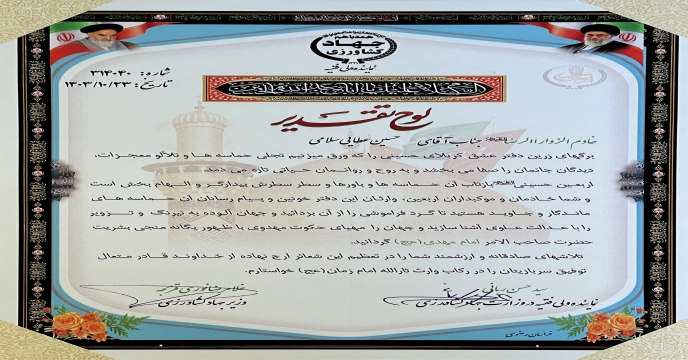 همه با هم
جهاد
کشاورزی
نماینده ولی فقیه
شماره: ۳۱۴۰۴۰
تاریخ: ۱۴۰۳/۱۰/۲۳
لوح تقدیر
خادم الزوار الرضا جناب آقای حسین عطایی سلامی
برگهای زرین دفتر عشق کربلای حسینی را که ورق میزنیم تجلی حماسه ها و تلألو معجزات،
دیدگان جانمان را صفا می بخشد و به روح و روانمان حیاتی تازه می دهد.
اربعین حسینی بازتاب آن حماسه ها و باورها و سطر سطرش بیدارگر و الهام بخش است
و شما خادمان و موکبداران اربعین، وارثان این دفتر خونین و پیام رسانان آن حماسه های
ماندگار و جاوید هستید تا گرد فراموشی را از آن بزدائید و جهان آلوده به نیرنگ و تزویر
را با عدالت علوی آشنا سازید و جهان را مهیای حکومت مهدوی با ظهور یگانه منجی بشریت
حضرت صاحب الامر امام مهدی (عج) گردانید.
تلاشهای صادقانه و ارزشمند شما را در تعظیم این شعائر ارج نهاده از خداوند قادر متعال
توفیق سربازیتان را در رکاب وارث ثارالله امام زمان (عج) خواستارم.
سید حسن ربانی
نماینده ولی فقیه در وزارت جهاد کشاورزی
غلامرضا نوری قزلجه
وزیر جهاد کشاورزی
خراسان رضوی